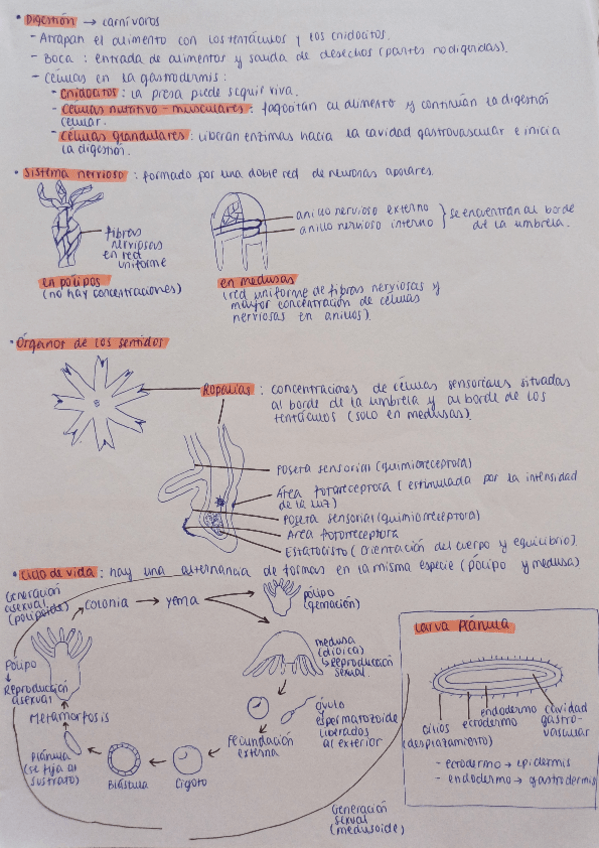 • Digestión → carnívoros
- Atrapan el alimento con los tentáculos y los cnidocitos.
- Boca: entrada de alimentos y salida de desechos (partes no digeridas).
- Células en la gastrodermis:
- Cnidocitos: la presa puede seguir viva.
- Células nutritivo-musculares: fagocitan al alimento y continúan la digestión
celular.
- Células glandulares: liberan enzimas hacia la cavidad gastrovascular e inicia
la digestión.
• Sistema nervioso: formado por una doble red de neuronas apolares.
fibras
nerviosas
en red
uniforme
en pólipos
(no hay concentraciones)
anillo nervioso externo
anillo nervioso interno
} se encuentran al borde
de la umbrela.
en medusas
(red uniforme de fibras nerviosas y
mayor concentración de células
nerviosas en anillos).
• Órganos de los sentidos
Ropalias: concentraciones de células sensoriales situadas
al borde de la umbrela y al borde de los
tentáculos (solo en medusas).
Foseta sensorial (quimiorreceptora)
Área fotorreceptora (estimulada por la intensidad
de la luz)
Foseta sensorial (quimiorreceptora)
Área fotorreceptora
Estatocisto (orientación del cuerpo y equilibrio).
• Ciclo de vida: hay una alternancia de formas en la misma especie (pólipo y medusa)
Generación
asexual
(polipoide)
colonia → yema
pólipo
(gemación)
medusa
(dioica)
↳ Reproducción
sexual.
óvulo
espermatozoide
liberados
al exterior
Fecundación
externa
Cigoto
Blástula
Plánula
(se fija al
sustrato)
Metamorfosis
Pólipo
↓
Reproducción
asexual
Generación
sexual
(medusoide)
Larva Plánula
cilios
(desplazamiento)
ectodermo
endodermo
cavidad
gastro-
vascular
- ectodermo → epidermis
- endodermo → gastrodermis